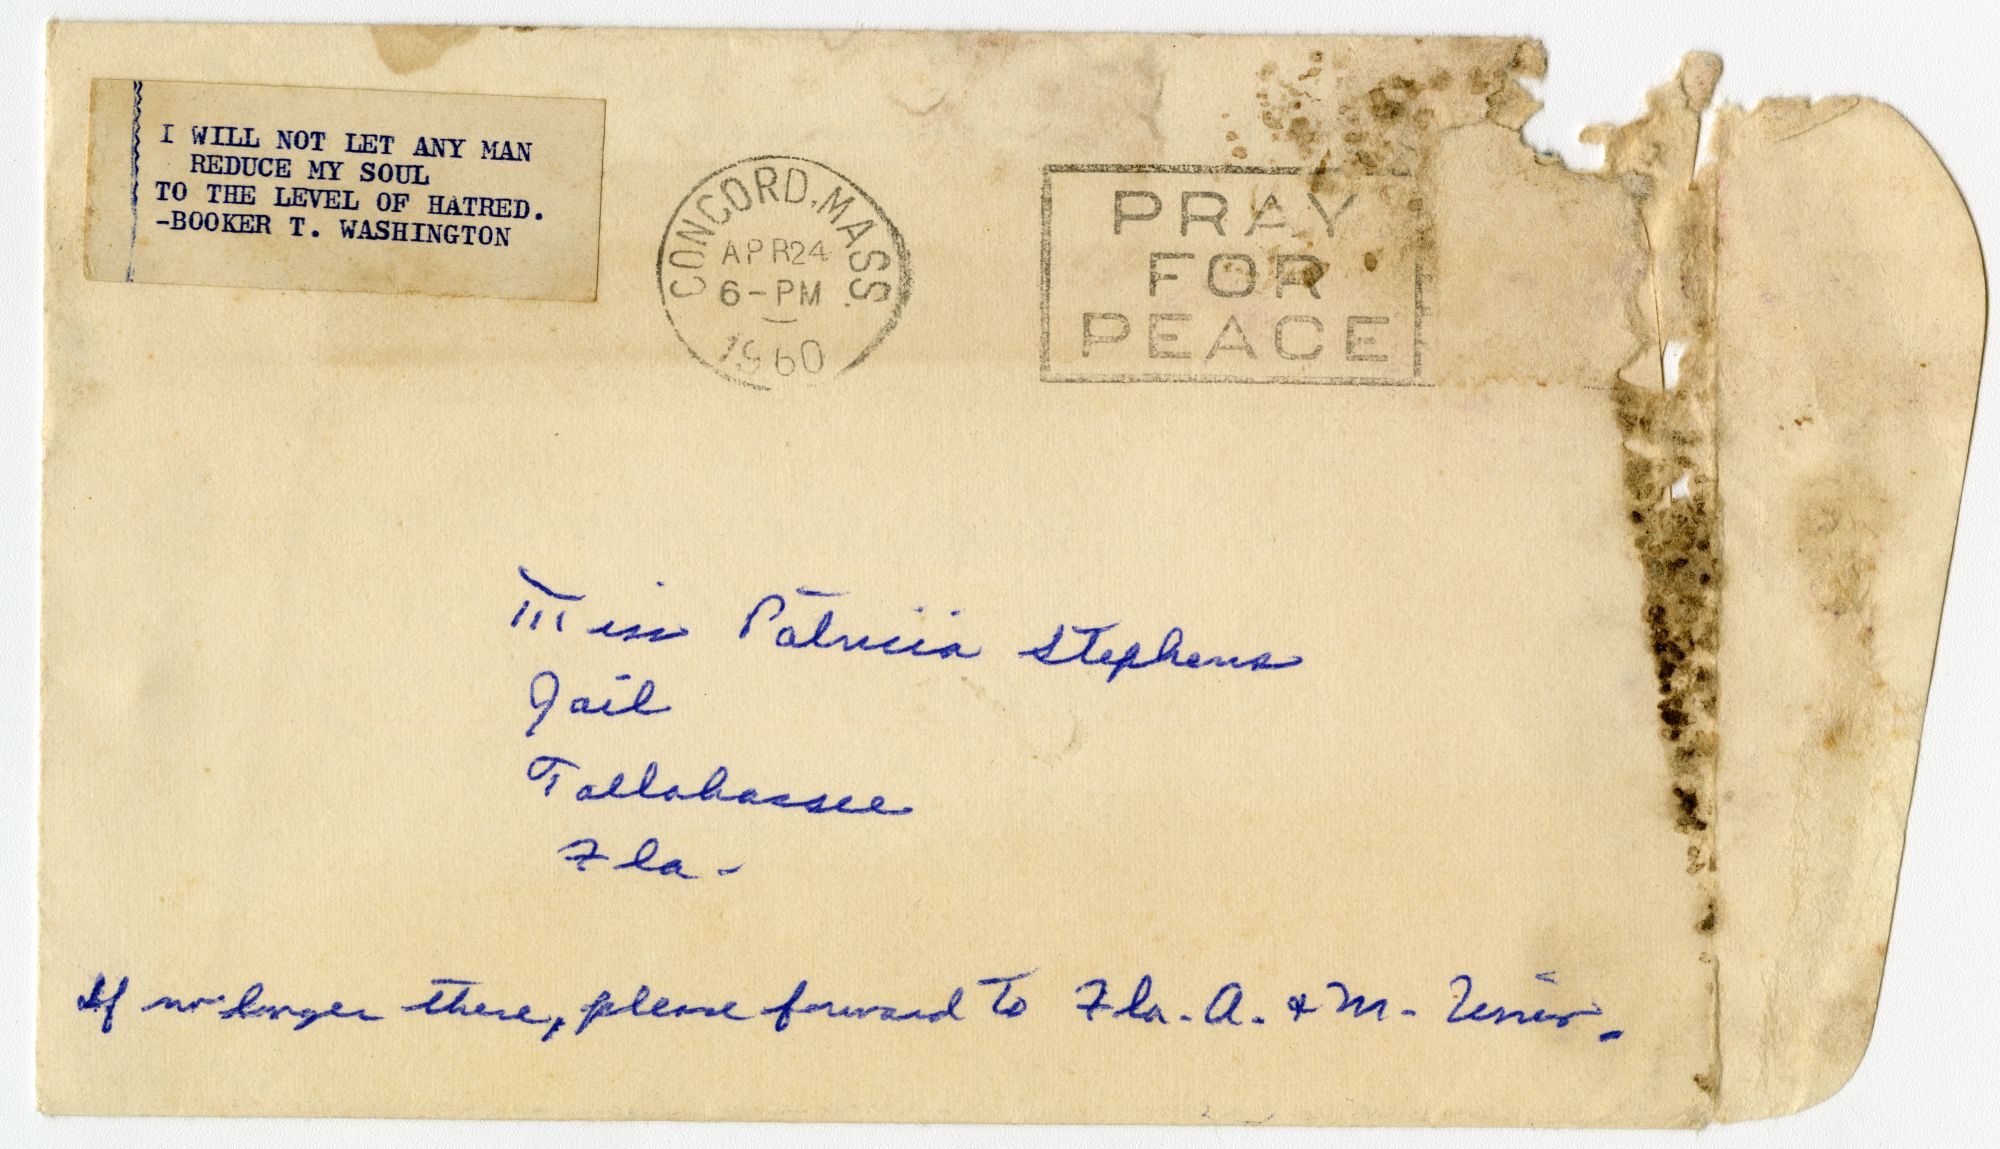 I WILL NOT LET ANY MAN
REDUCE MY SOUL
TO THE LEVEL OF HATRED.
-BOOKER T. WASHINGTON
CONCORD, MASS.
APR 24
6-PM
1960
PRAY
FOR
PEACE
Miss Patricia Stephens
Jail
Tallahassee
Fla-
If no longer there, please forward to Fla. A. & M. Univ.